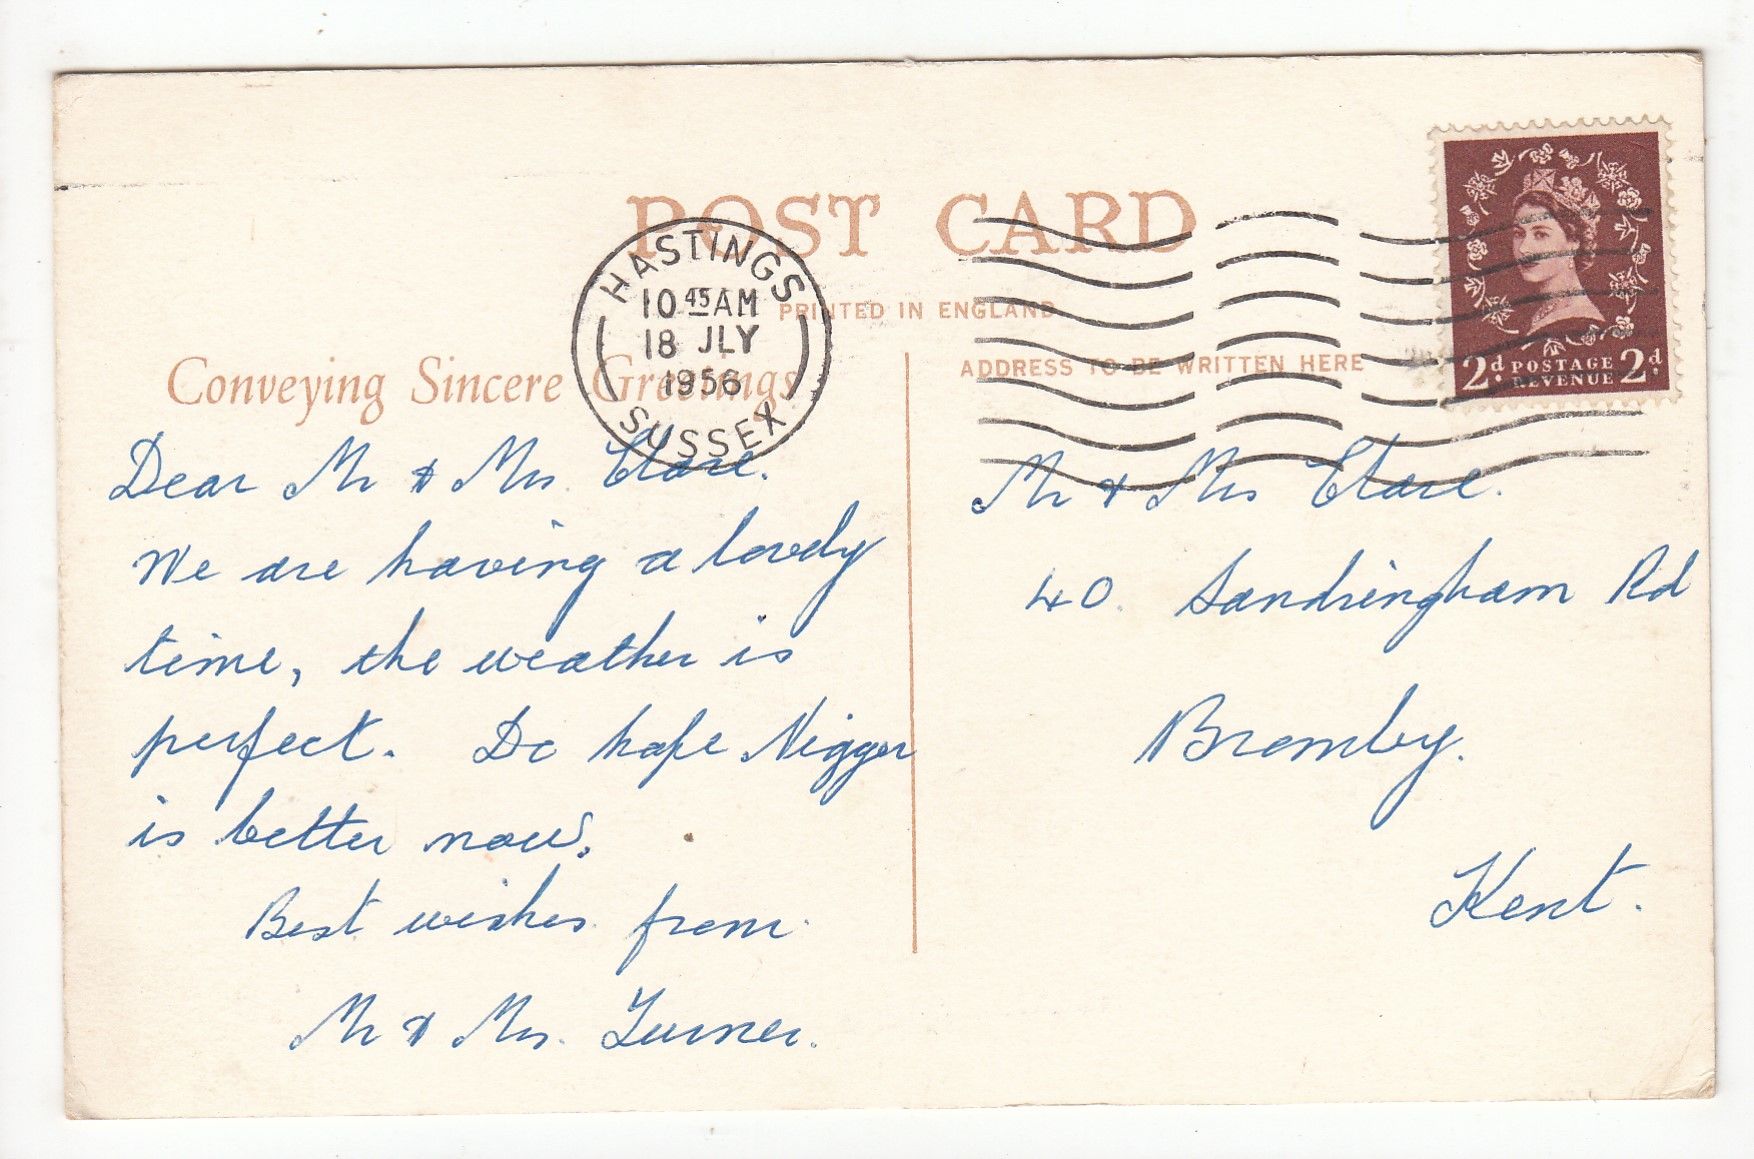 POST CARD
PRINTED IN ENGLAND
HASTINGS
10 45 AM
18 JLY
1956
SUSSEX
Conveying Sincere Greetings
ADDRESS TO BE WRITTEN HERE
2d POSTAGE REVENUE 2d
Dear Mr & Mrs. Clare.
We are having a lovely
time, the weather is
perfect. Do hope Nigger
is better now.
Best wishes from
Mr & Mrs. Turner.
Mr & Mrs Clare.
40. Sandringham Rd
Bromley.
Kent.